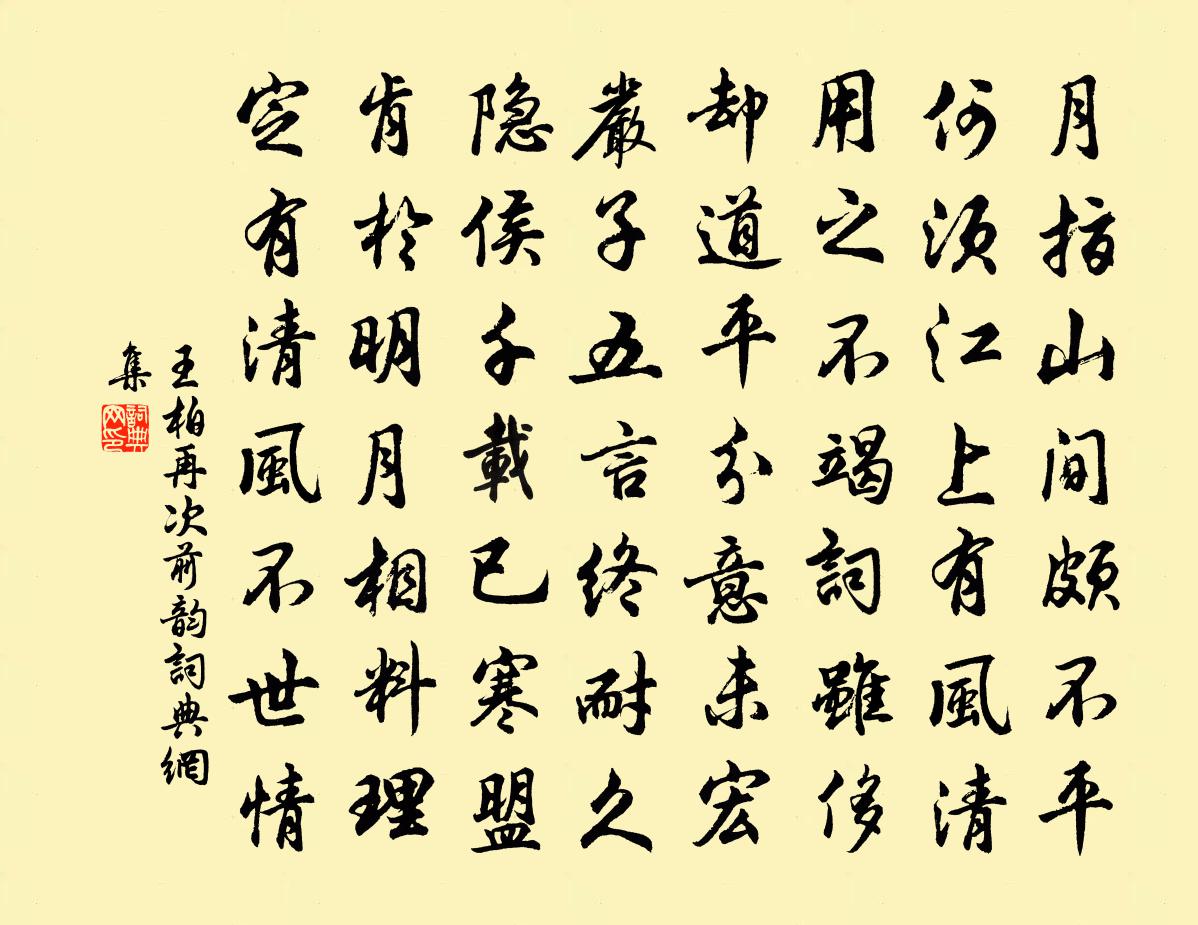 月指山間頗不平
何須江上有風清
用之不竭詞雖侈
却道平分意未宏
嚴子五言終耐久
隐侯千載已寒盟
肯於明月相料理
定有清風不世情
王柏再次前韵詞典網
集
詞典
网印